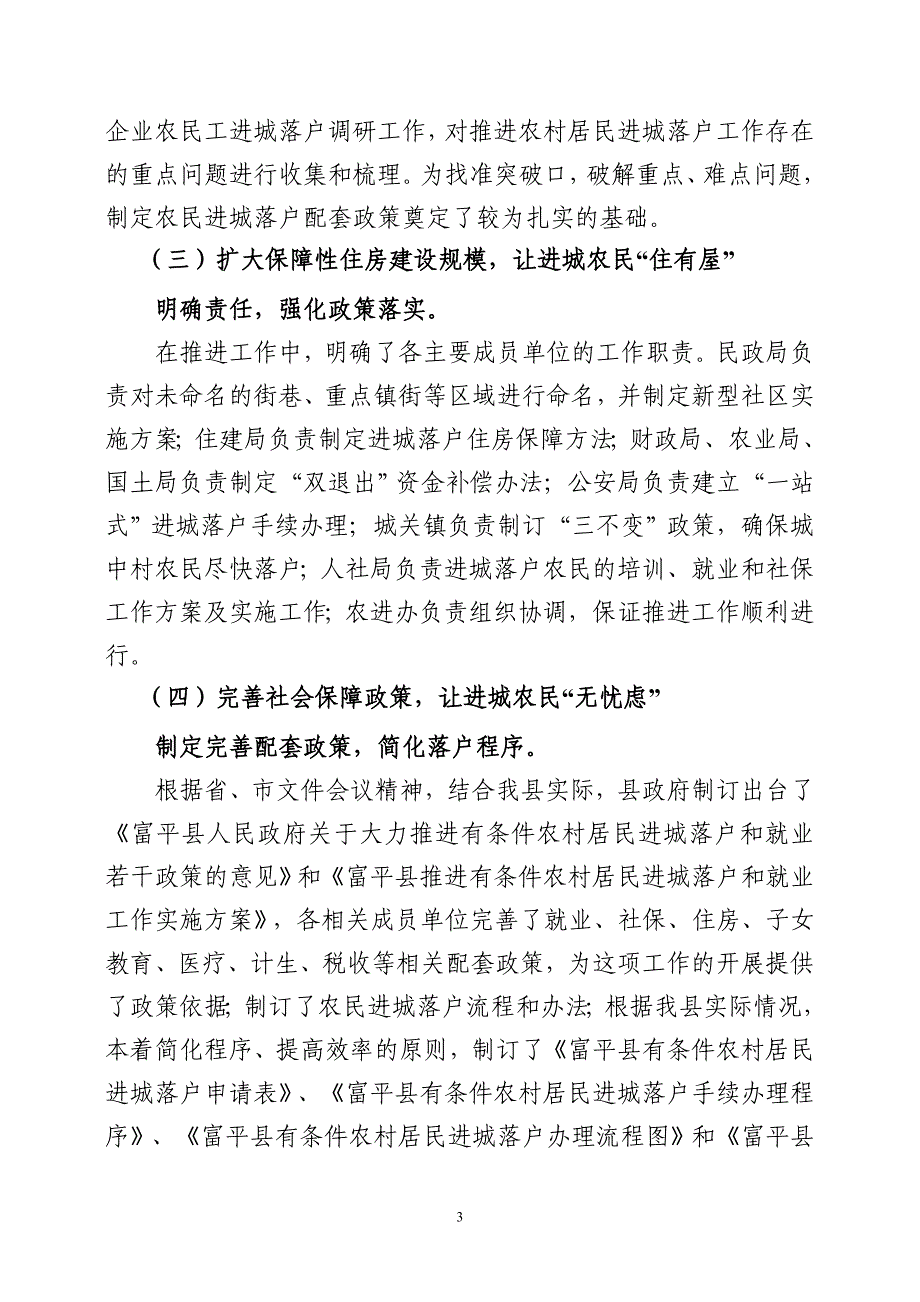 企业农民工进城落户调研工作，对推进农村居民进城落户工作存在
的重点问题进行收集和梳理。为找准突破口，破解重点、难点问题，
制定农民进城落户配套政策奠定了较为扎实的基础。
（三）扩大保障性住房建设规模，让进城农民“住有屋”
明确责任，强化政策落实。
在推进工作中，明确了各主要成员单位的工作职责。民政局负
责对未命名的街巷、重点镇街等区域进行命名，并制定新型社区实
施方案；住建局负责制定进城落户住房保障方法；财政局、农业局、
国土局负责制定“双退出”资金补偿办法；公安局负责建立“一站
式”进城落户手续办理；城关镇负责制订“三不变”政策，确保城
中村农民尽快落户；人社局负责进城落户农民的培训、就业和社保
工作方案及实施工作；农进办负责组织协调，保证推进工作顺利进
行。
（四）完善社会保障政策，让进城农民“无忧虑”
制定完善配套政策，简化落户程序。
根据省、市文件会议精神，结合我县实际，县政府制订出台了
《富平县人民政府关于大力推进有条件农村居民进城落户和就业
若干政策的意见》和《富平县推进有条件农村居民进城落户和就业
工作实施方案》，各相关成员单位完善了就业、社保、住房、子女
教育、医疗、计生、税收等相关配套政策，为这项工作的开展提供
了政策依据；制订了农民进城落户流程和办法；根据我县实际情况，
本着简化程序、提高效率的原则，制订了《富平县有条件农村居民
进城落户申请表》、《富平县有条件农村居民进城落户手续办理程
序》、《富平县有条件农村居民进城落户办理流程图》和《富平县
3